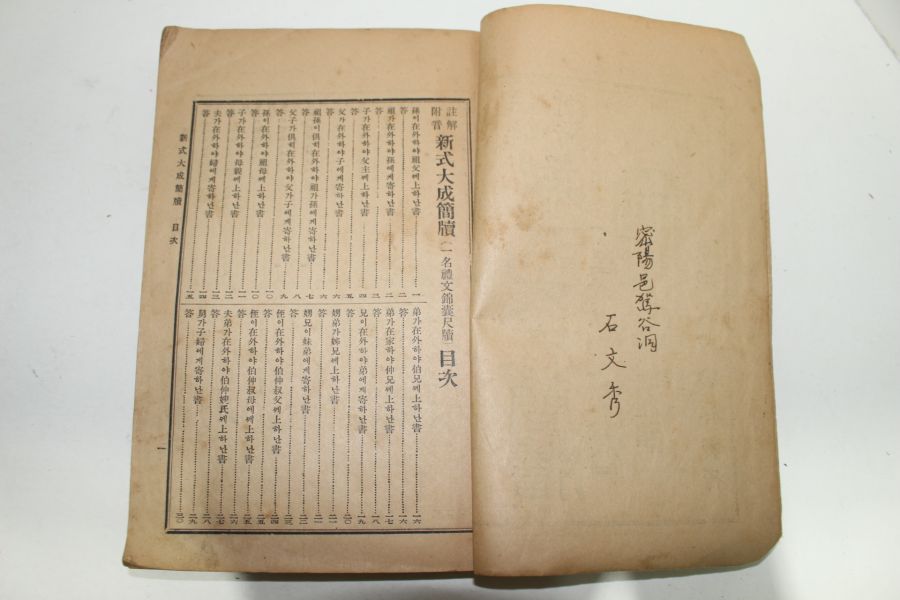 密陽邑
谷洞
石文秀
註解
附音
新式大成簡牘(一名禮文錦囊尺牘)目次
孫이在外하야祖父ᄭᅦ上하난書 一
答 二
祖가在外하야孫에게寄하난書 二
答 三
子가在外하야父主ᄭᅦ上하난書 四
答 五
父가在外하야子에게寄하난書 六
答 六
祖孫이俱히在外하야祖가孫에게寄하난書 七
答 八
父子가俱히在外하야父가子에게寄하난書 九
答 一〇
孫이在外하야祖母ᄭᅦ上하난書 一〇
答 一一
子가在外하야母親ᄭᅦ上하난書 一二
答 一三
夫가在外하야婦에게寄하난書 一四
答 一五
弟가在外하야伯兄ᄭᅦ上하난書 一六
答 一六
弟가在家하야仲兄ᄭᅦ上하난書 一七
答 一八
兄이在外하야弟에게寄하난書 一九
答 二〇
娚弟가姊兄ᄭᅦ上하난書 二一
答 二一
娚兄이妹弟에게寄하난書 二二
答 二三
侄이在外하야伯仲叔父ᄭᅦ上하난書 二四
答 二五
侄이在外하야伯仲叔母ᄭᅦ上하난書 二五
答 二六
夫弟가在外하야伯仲嫂氏ᄭᅦ上하난書 二七
答 二八
舅가子婦에게寄하난書 二九
答 三〇
新式大成簡牘 目次
一